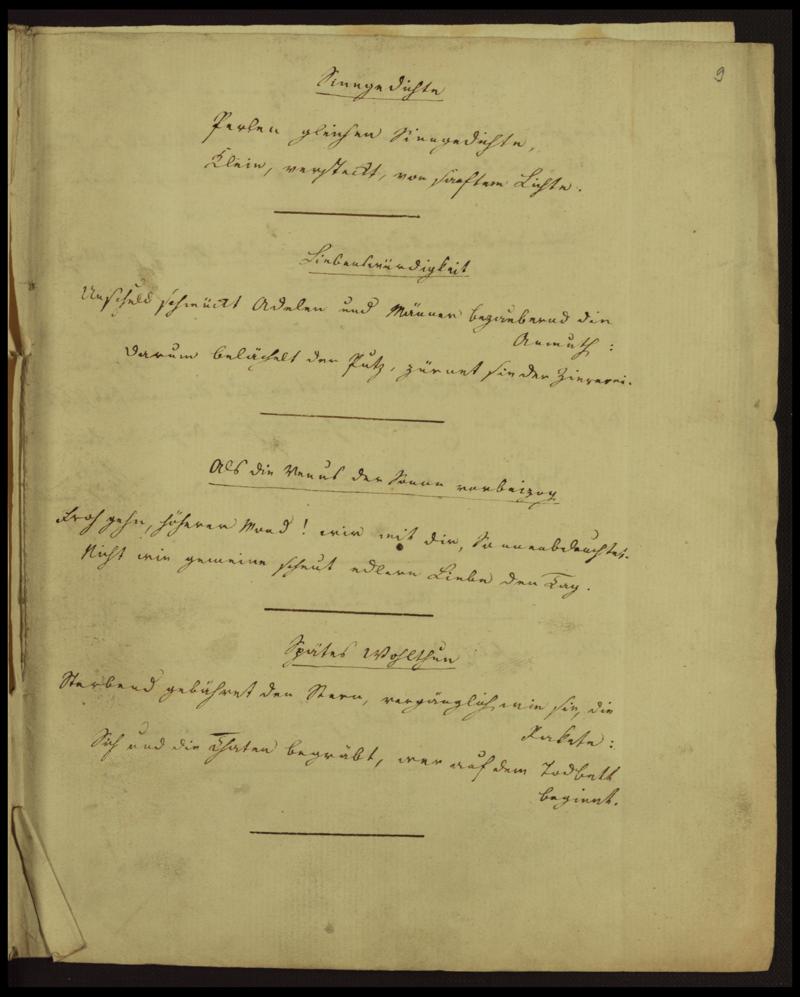 9
Sinngedichte
Perlen gleichen Sinngedichte,
Klein, versteckt, von sanftem Lichte.
Liebenswürdigkeit
Unschuld schmückt Adelen und Männer bezaubernd die
Anmuth:
Darum belächelt der Putz, zürnet sie der Ziererei.
Als die Venus der Sonne vorbeizog
Froh gehn, höherer Mond! wir mit dir, Sonnenbeleuchtet.
Nicht wie gemeine scheut edlere Liebe den Tag.
Spätes Wohlthun
Sterbend gebühret den Stern, vergänglich wie sie, die
Rakete:
Sich und die Thaten begräbt, wer auf dem Todbett
beginnt.